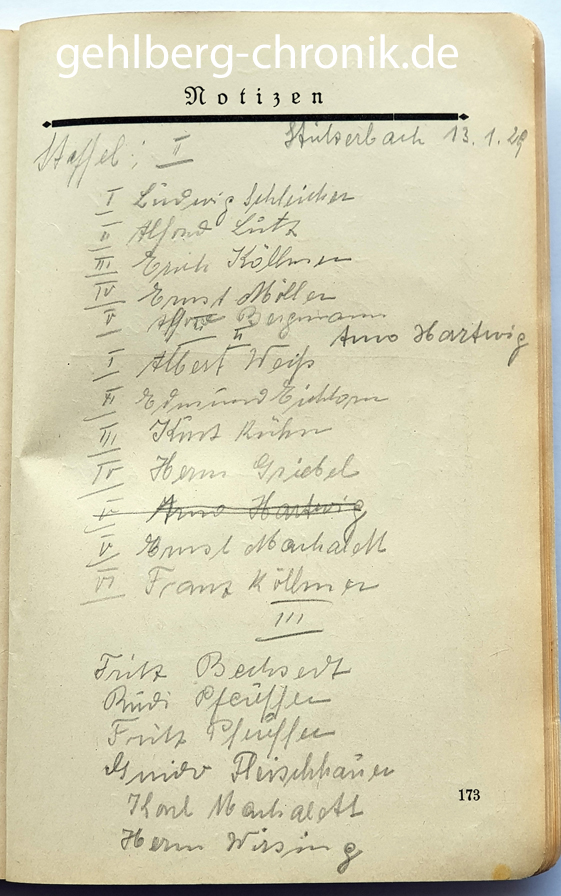 gehlberg-chronik.de
Notizen
Stützerbach 13.1.29
Staffel: II
I Ludwig Schleicher
II Alfred Lutz
III Erich Köllmer
IV Ernst Möller
V Alfred Bergmann
II Arno Hartwig
I Albert Weiß
II Edmund Eichhorn
III Kurt Kühn
IV Herm Griebel
V Arno Hartwig
V Ernst Machalett
VI Franz Köllmer
III
Fritz Bechstedt
Rudi Pfeuffer
Fritz Pfeuffer
Guido Fleischhauer
Karl Machalett
Herm Wirsing
173